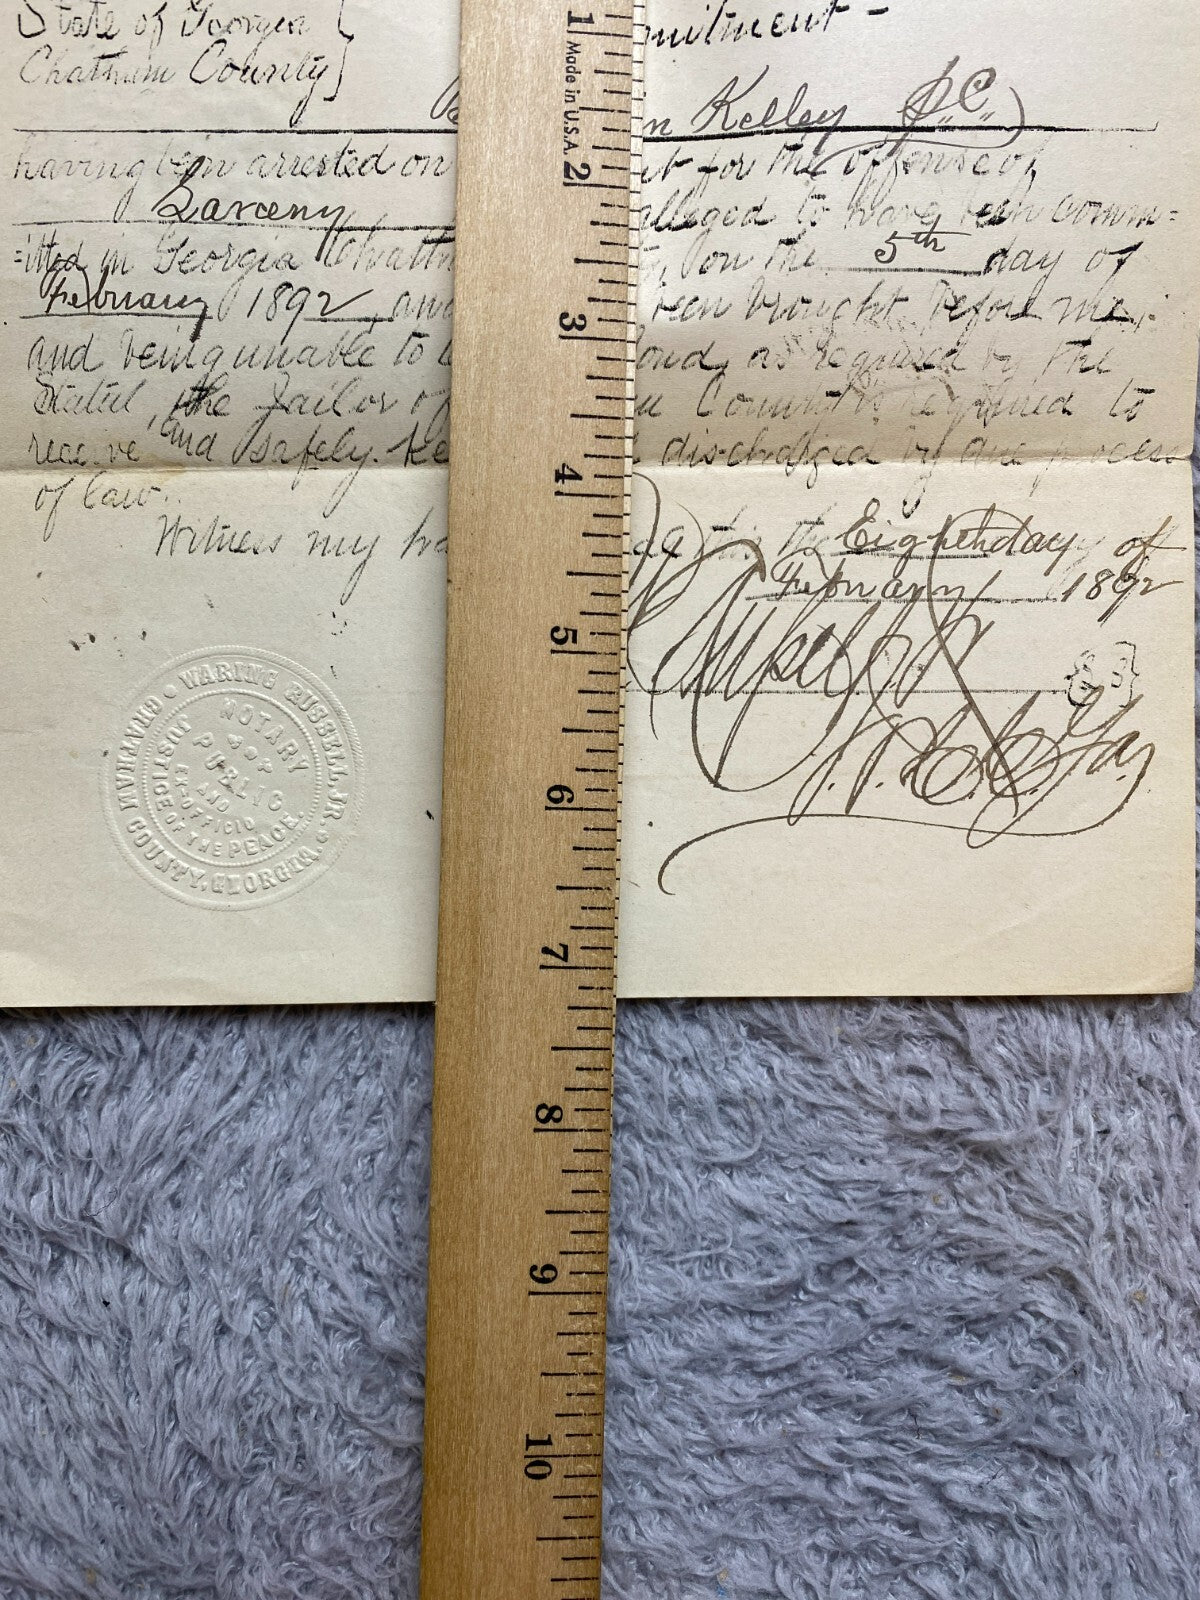 State of Georgia
Chatham County
mitment -
n Kelley P.C.
having been arrested on
t for the offense of
Larceny
alleged to have been comm=
=itted in Georgia Chath
on the 5th day of
February 1892 and
been brought before me,
and being unable to
bond, as required by the
Statut, the Jailor of
County is required to
receive and safely ke
discharged by due process
of law.
Witness my ha
this the Eighth day of
February 1892
J.P. C.C. Ga.
WARING RUSSELL, JR.
CHATHAM COUNTY, GEORGIA.
NOTARY PUBLIC
AND
EX-OFFICIO
JUSTICE OF THE PEACE.
Made in U.S.A.
1
2
3
4
5
6
7
8
9
10